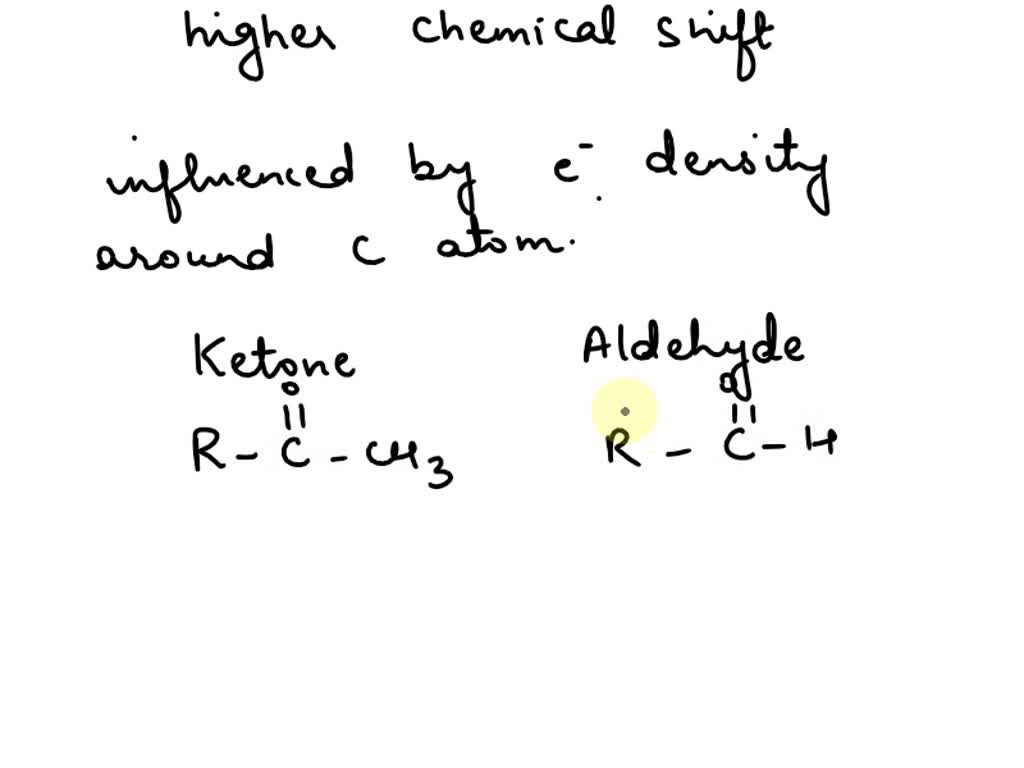 higher chemical shift
influenced by e⁻ density
around C atom.
Ketone Aldehyde
O O
|| ||
R - C - CH3 R - C - H